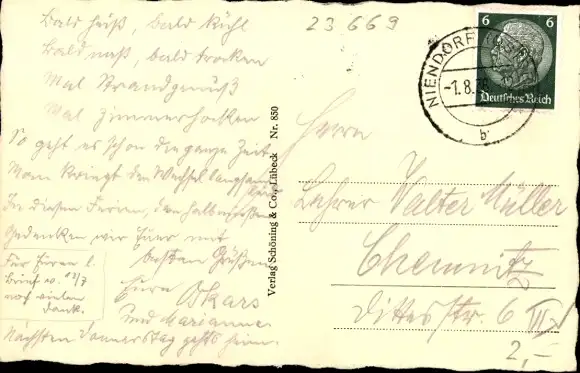 Bald heiß, bald kühl
Bald naß, bald trocken
Mal Strandgenuß
Mal Zimmerhocken
So geht es schon die ganze Zeit
Man kriegt den Wechsel langsam
In diesen Ferien, den
Gedenken wir Euer mit
besten Grüßen
Eure Oskars
und Marianne.
Nächsten Donnerstag gehts heim.
Für Euren l.
Brief v. 12/7
noch vielen
Dank.
Verlag Schöning & Co., Lübeck Nr. 850
23669
NIENDORF
-1.8.
b
6 6
Deutsches Reich
Herrn
Lehrer Walter Müller
Chemnitz
Dittesstr. 6 III
2,-